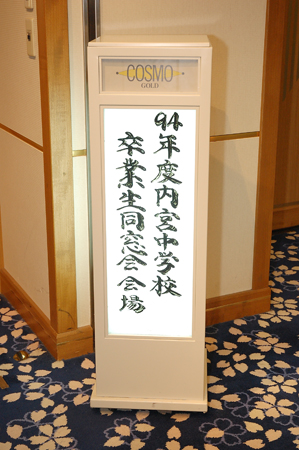 COSMO
GOLD
94年度内宮中学校
卒業生同窓会会場